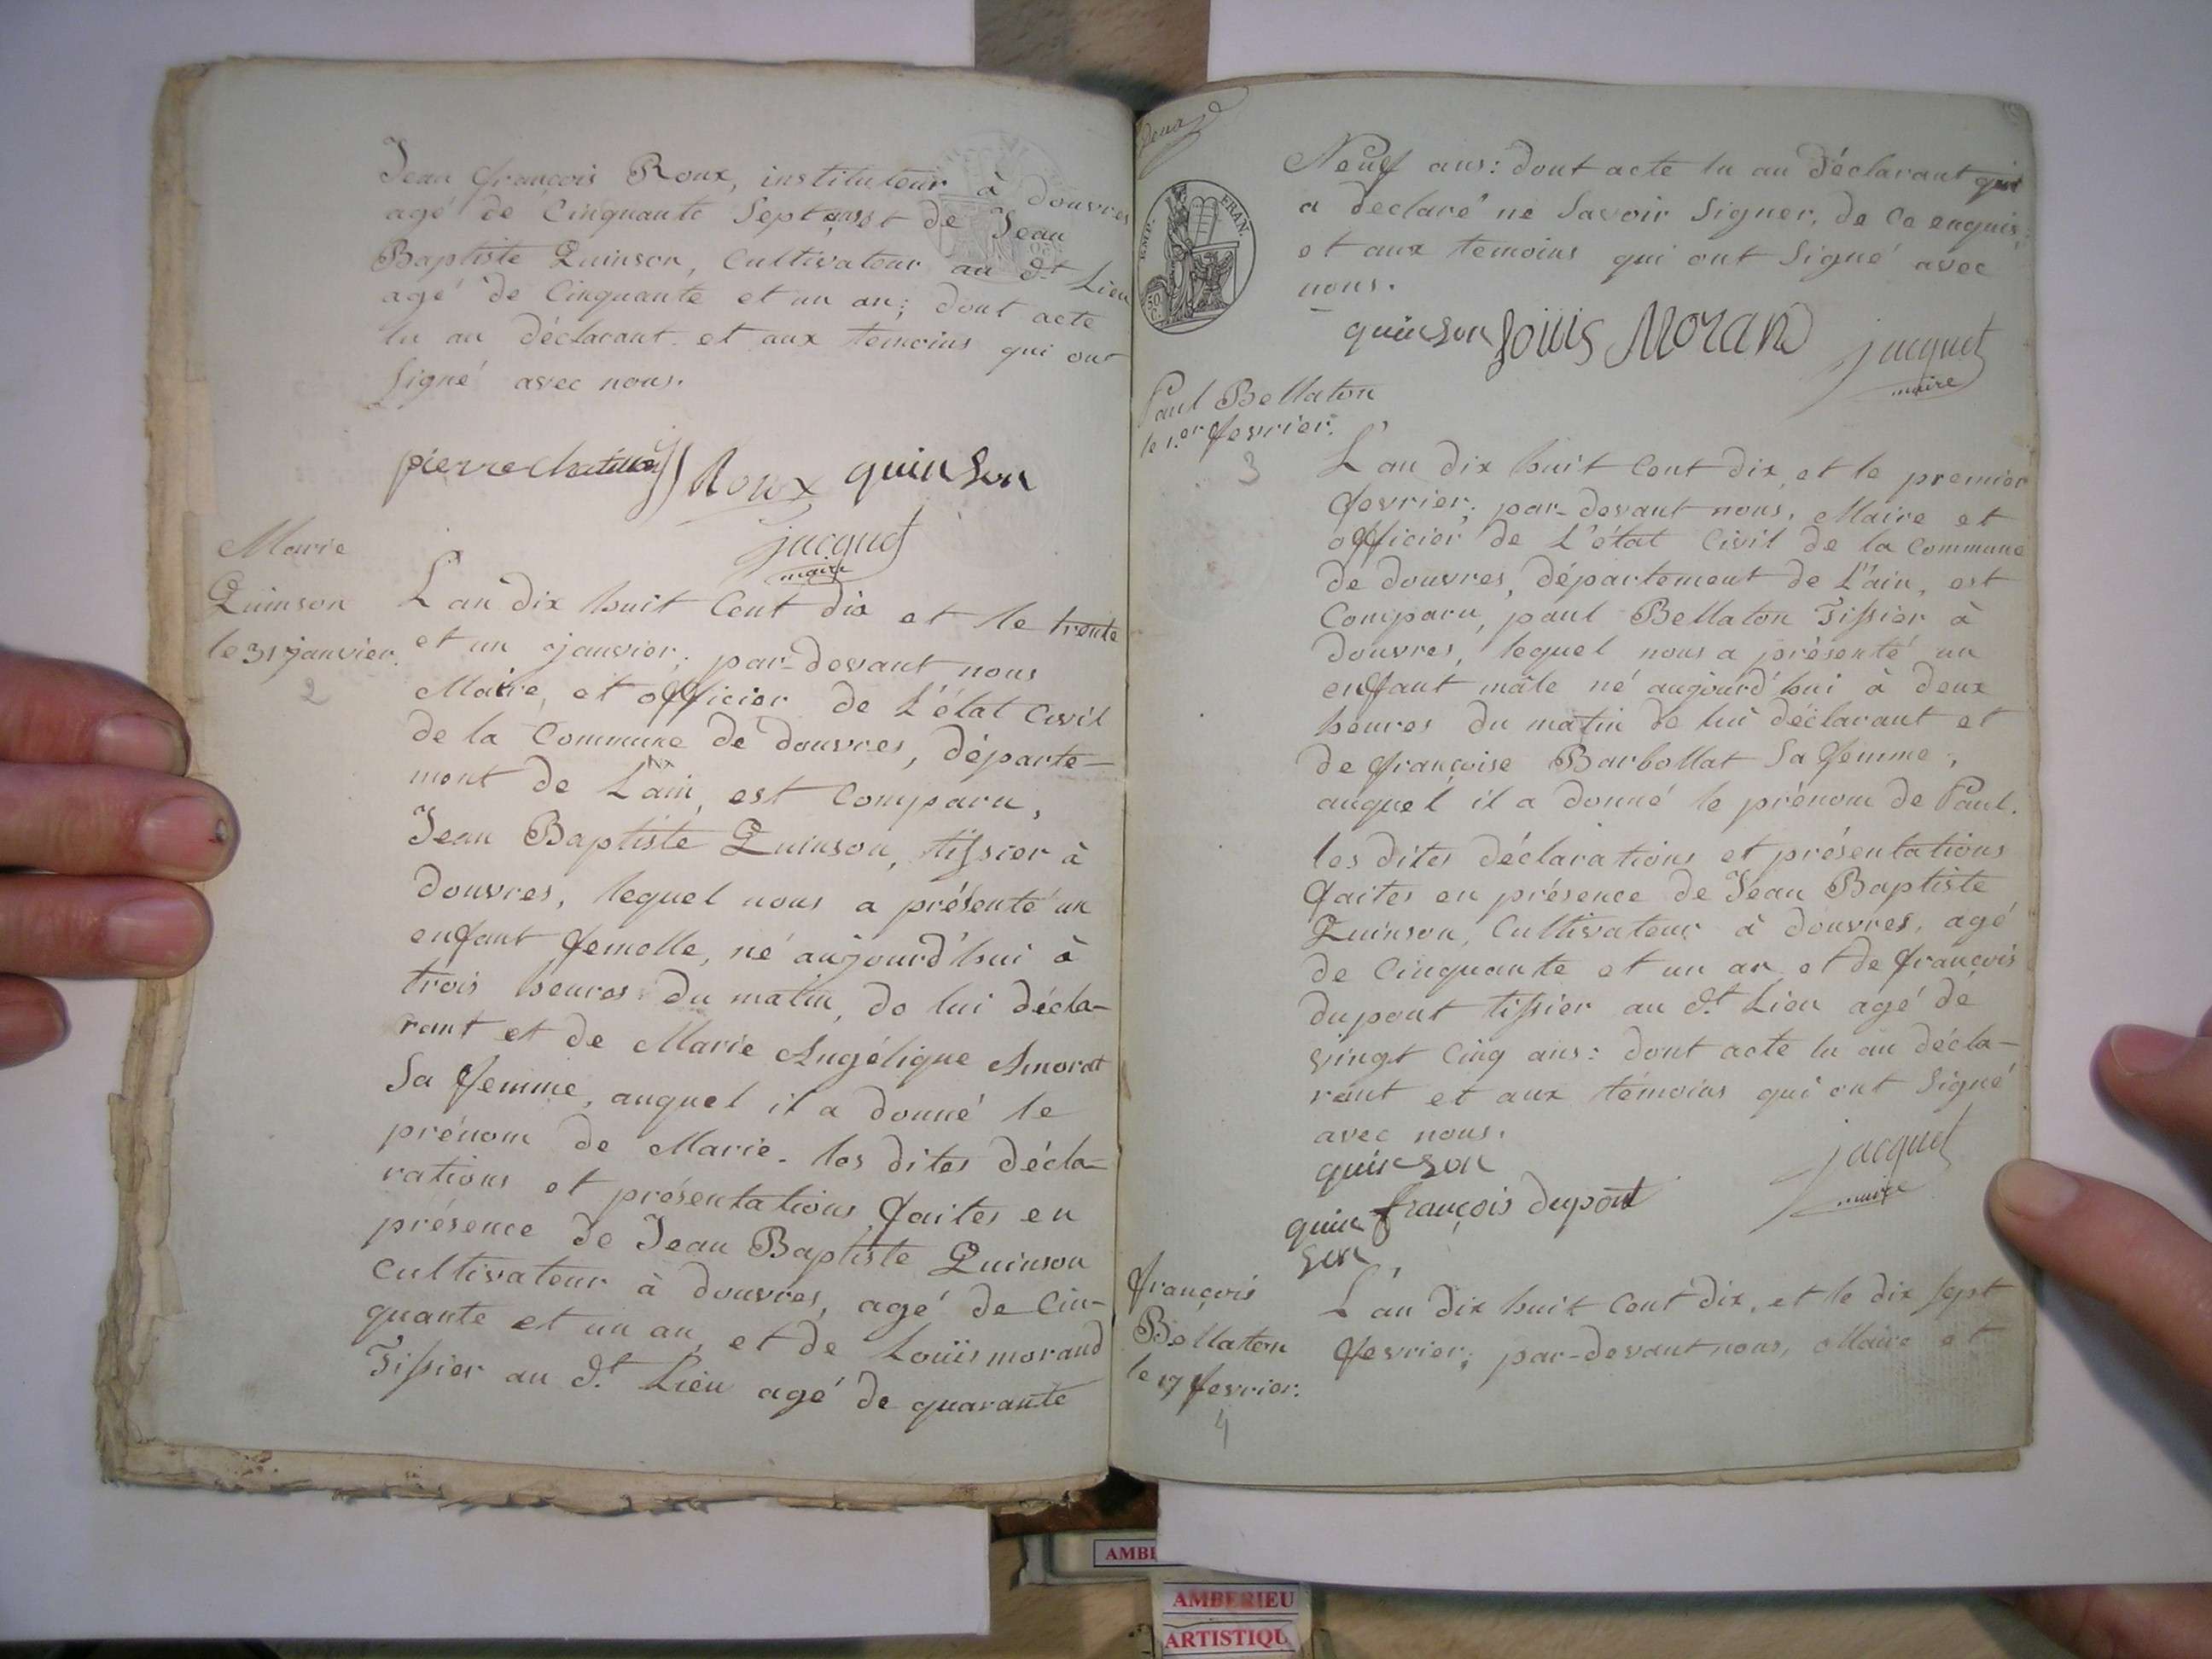 Jean françois Roux, instituteur à douvres
agé de Cinquante Sept ans et de Jean
Baptiste Quinson, Cultivateur au dt Lieu
agé de Cinquante et un an; dont acte
lu au déclarant et aux temoins qui ont
Signé avec nous.
pierre Roux quinson
jacquet
maire
Marie
Quinson
le 31 janvier.
2
L'an dix huit Cent dix et le trente
et un janvier; par-devant nous
Maire, et officier de L'état Civil
de la Commune de douvres, départe-
ment de L'ain, est Comparu,
Jean Baptiste Quinson, tissier à
douvres, lequel nous a présenté un
enfant femelle, né aujourd'hui à
trois heures du matin, de lui décla-
rant et de Marie Angélique Amorat
Sa femme, auquel il a donné le
prénom de Marie. les dites décla-
rations et présentations faites en
présence de Jean Baptiste Quinson
Cultivateur à douvres, agé de Cin-
quante et un an, et de Louïs morand
Tissier au dt. Lieu agé de quarante
deux
EMP. FRAN.
50 C.
Neuf ans: dont acte lu au déclarant qui
a declaré ne Savoir Signer, de Ce enquis;
et aux temoins qui ont Signé avec
nous.
quinson Louis MORAND jacquet
maire
Paul Bellaton
le 1.er fevrier.
3
L'an dix huit Cent dix, et le premier
fevrier; par-devant nous, Maire et
officier de L'état Civil de la Commune
de douvres, département de L'ain, est
Comparu, paul Bellaton Tissier à
Douvres, lequel nous a présenté un
enfant mâle né aujourd'hui à deux
heures du matin de lui déclarant et
de françoise Barbollat Sa femme;
auquel il a donné le prénom de Paul.
les dites déclarations et présentations
faites en présence de Jean Baptiste
Quinson, Cultivateur à douvres, agé
de Cinquante et un an et de françois
dupont tissier au dt. Lieu agé de
vingt Cinq ans: dont acte lu au décla-
rant et aux témoins qui ont Signé
avec nous.
quinson
jacquet
maire
quin françois dupont
son
françois
Bellaton
le 17 fevrier.
4
L'an dix huit Cent dix, et le dix Sept
fevrier; par-devant nous, Maire et
AMBE
AMBERIEU
ARTISTIQU